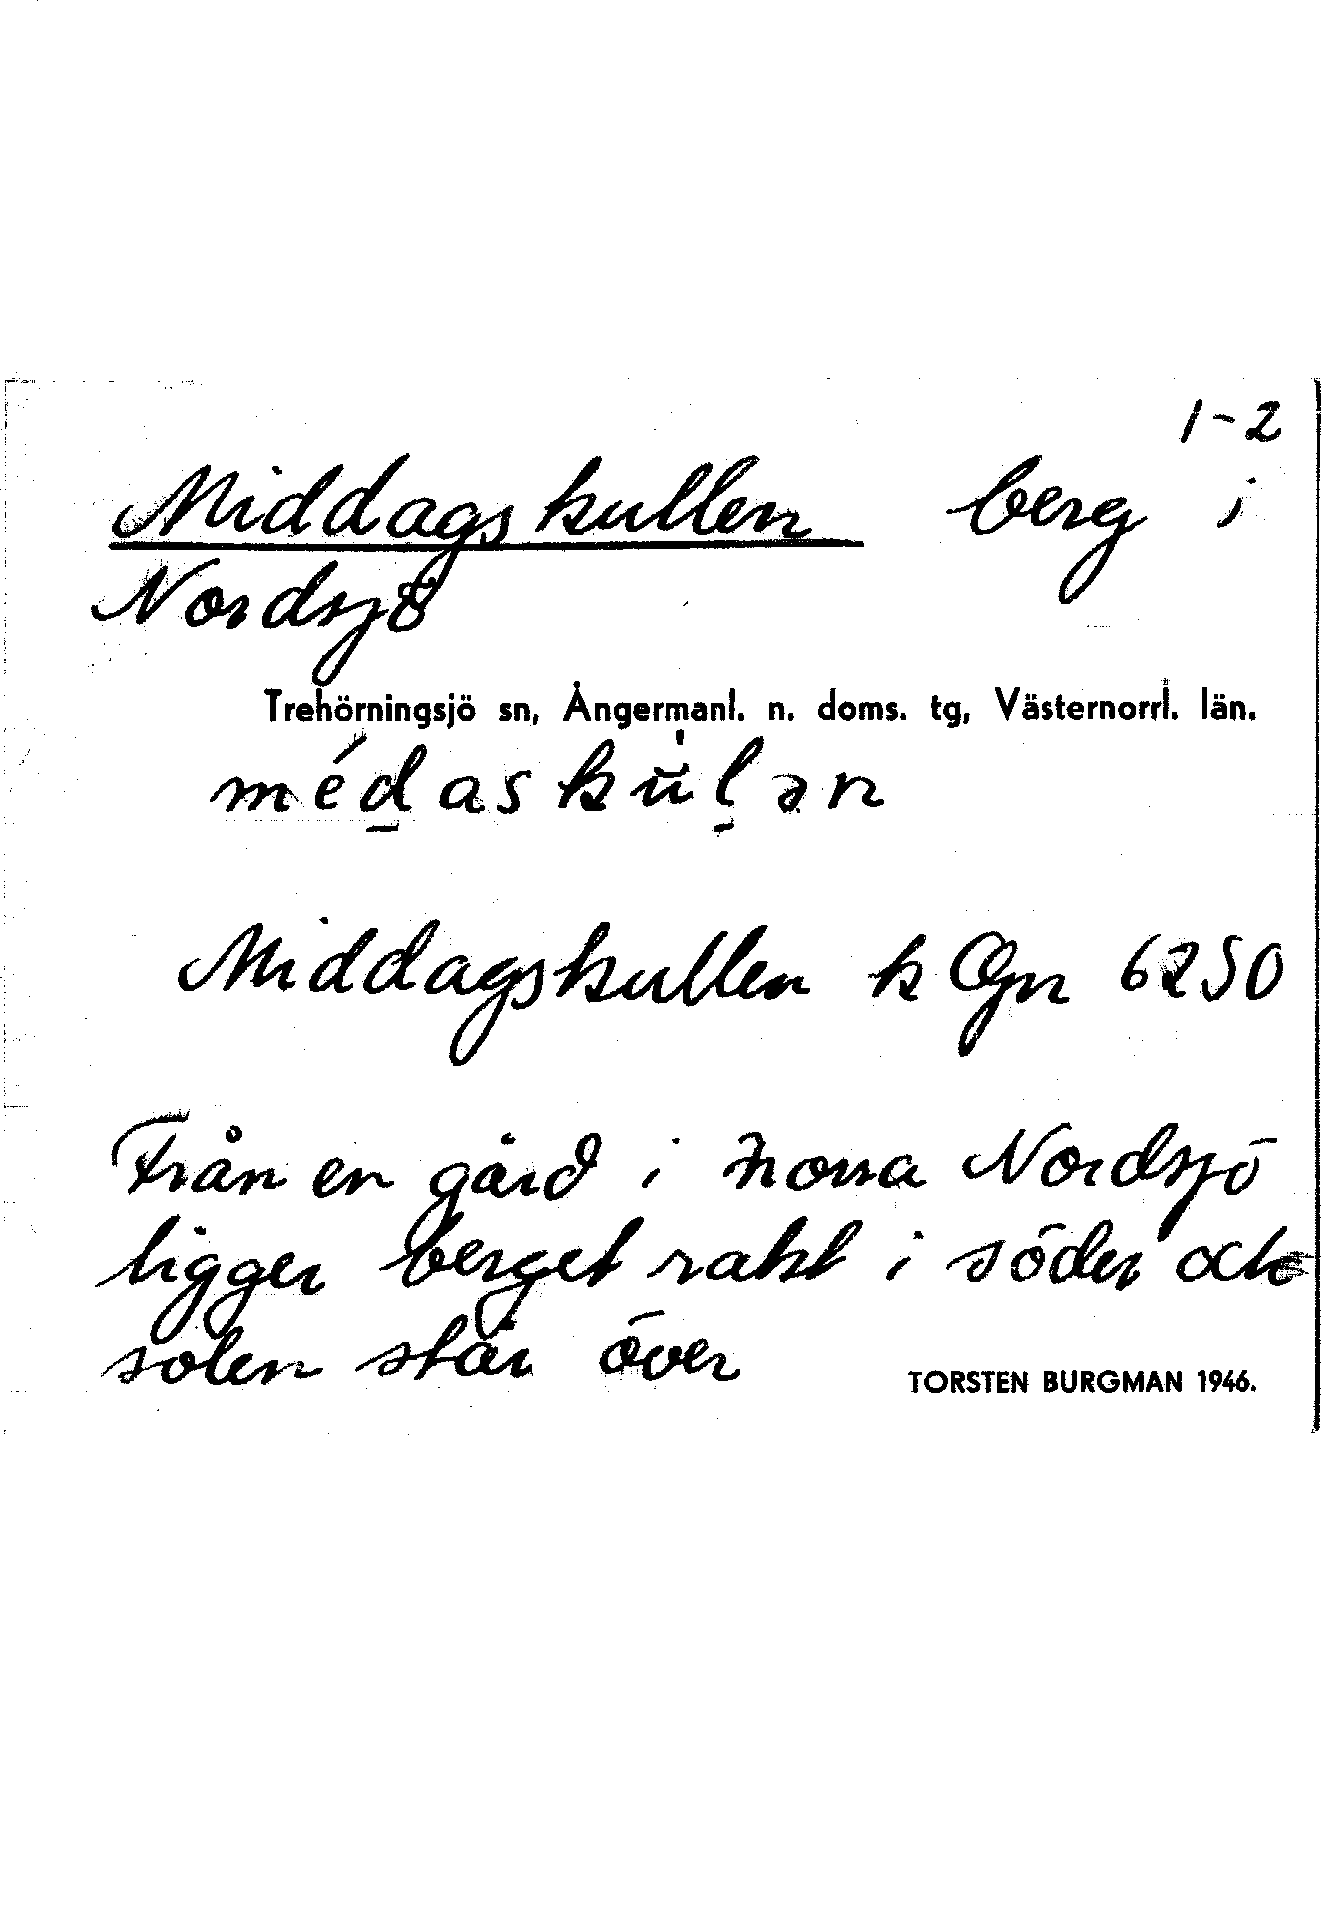 1-2
Middagskullen berg i
Nordsjö
Trehörningsjö sn, Ångermanl. n. doms. tg, Västernorrl. län.
médaskulən
Middagskullen k Ogn 6250
Från en gård i norra Nordsjö
ligger berget rakt i söder och
solen står över
TORSTEN BURGMAN 1946.